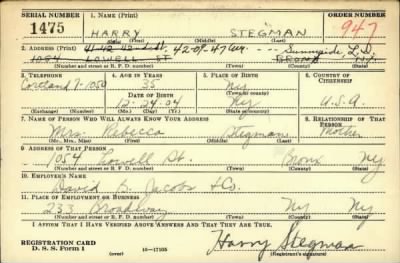 SERIAL NUMBER 1. NAME (Print) ORDER NUMBER
1475 HARRY STEGMAN 947
(First) (Middle) (Last)
2. ADDRESS (Print) 41-42 42-09-47 Ave. --- Sunnyside, L.I.
1054 LOWELL ST BRONX N.Y.
(Number and street or R. F. D. number) (Town) (County) (State)
3. TELEPHONE 4. AGE IN YEARS 5. PLACE OF BIRTH 6. COUNTRY OF CITIZENSHIP
Cortland 7-1050 35 NY
DATE OF BIRTH (Town or county)
12-24-04 NY U.S.A.
(Exchange) (Number) (Mo.) (Day) (Yr.) (State or country)
7. NAME OF PERSON WHO WILL ALWAYS KNOW YOUR ADDRESS 8. RELATIONSHIP OF THAT PERSON
Mrs. Rebecca Stegman Mother
(Mr., Mrs., Miss) (First) (Middle) (Last)
9. ADDRESS OF THAT PERSON
1054 Lowell St. Bronx NY
(Number and street or R. F. D. number) (Town) (County) (State)
10. EMPLOYER'S NAME
David B. Jacobs & Co.
11. PLACE OF EMPLOYMENT OR BUSINESS
233 Broadway NY NY
(Number and street or R. F. D. number) (Town) (County) (State)
I AFFIRM THAT I HAVE VERIFIED ABOVE ANSWERS AND THAT THEY ARE TRUE.
REGISTRATION CARD
D. S. S. Form 1 16-17105 Harry Stegman
(Registrant's signature)